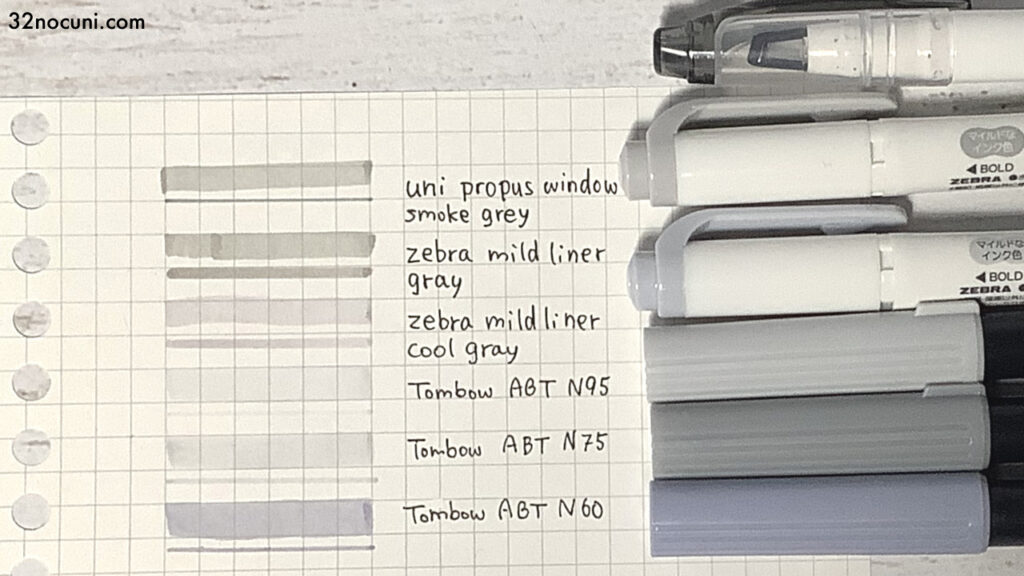 32nocuni.com
uni propus window
smoke grey
zebra mild liner
gray
zebra mild liner
cool gray
Tombow ABT N95
Tombow ABT N75
Tombow ABT N60
マイルドな
インク色
◀BOLD
ZEBRA
マイルドな
インク色
◀BOLD
ZEBRA